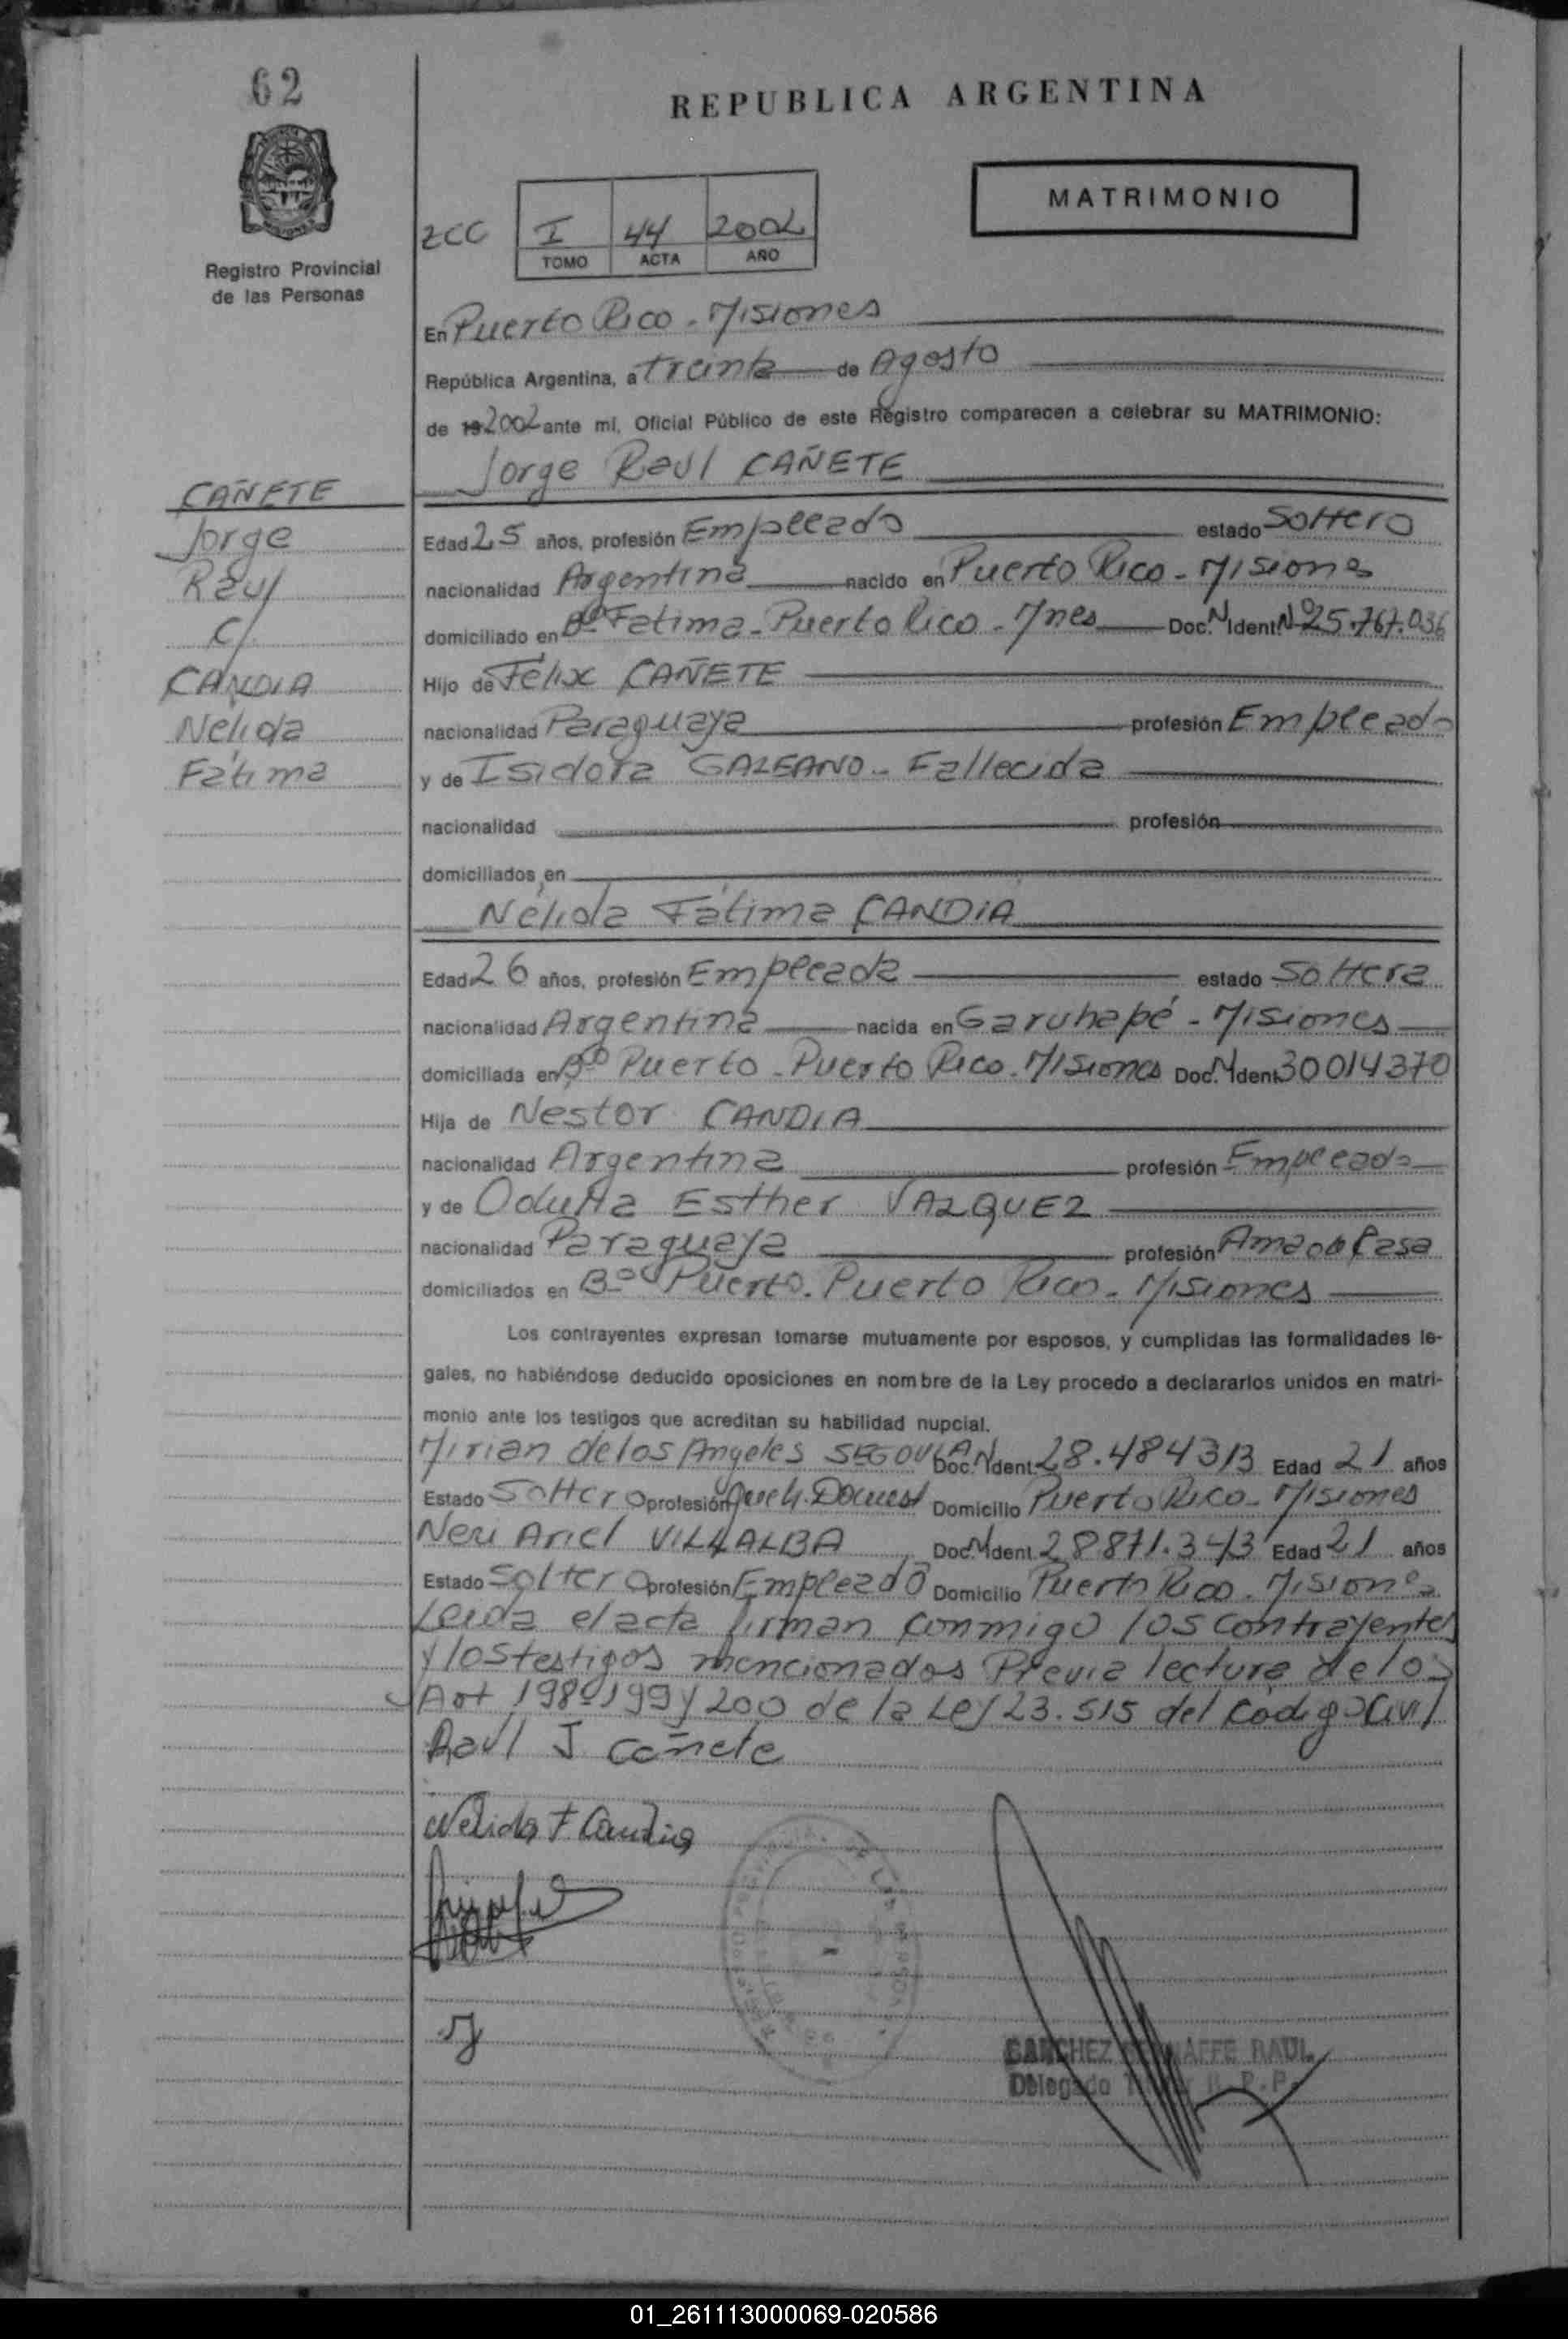 62
REPUBLICA ARGENTINA
MATRIMONIO
Registro Provincial
de las Personas
ZCC
I 44 2002
TOMO ACTA AÑO
En Puerto Rico - Misiones
República Argentina, a treinta de Agosto
de 19 2002 ante mí, Oficial Público de este Registro comparecen a celebrar su MATRIMONIO:
Jorge Raul CAÑETE
CAÑETE
Jorge
Raul
c/.
CANDIA
Nelida
Fátima
Edad 25 años, profesión Empleado estado Soltero
nacionalidad Argentina nacido en Puerto Rico - Misiones
domiciliado en Bº Fatima - Puerto Rico - Mnes Doc. N Ident. Nº 25.767.036
Hijo de Félix CAÑETE
nacionalidad Paraguaya profesión Empleado
y de Isidora GALEANO - Fallecida
nacionalidad profesión
domiciliados en
Nélida Fátima CANDIA
Edad 26 años, profesión Empleada estado Soltera
nacionalidad Argentina nacida en Garuhapé - Misiones
domiciliada en Bº Puerto - Puerto Rico - Misiones Doc. N Ident. 30014370
Hija de Nestor CANDIA
nacionalidad Argentina profesión Empleado
y de Esther VAZQUEZ
nacionalidad Paraguaya profesión Ama de Casa
domiciliados en Bº Puerto - Puerto Rico - Misiones
Los contrayentes expresan tomarse mutuamente por esposos, y cumplidas las formalidades le-
gales, no habiéndose deducido oposiciones en nombre de la Ley procedo a declararlos unidos en matri-
monio ante los testigos que acreditan su habilidad nupcial.
Mirian de los Angeles SEGOVIA Doc. N Ident. 28.484313 Edad 21 años
Estado Soltero profesión Domicilio Puerto Rico - Misiones
Neri Ariel VILLALBA Doc. N Ident. 28871.343 Edad 21 años
Estado Soltero profesión Empleado Domicilio Puerto Rico - Misiones
Leida el acta firman conmigo los contrayentes
y los testigos mencionados Previa lectura de los
Art 198-199 y 200 de la Ley 23.515 del Código Civil
Raúl J Cañete
Nelida F. Candia
SANCHEZ RAUL
Delegado R.P.P.
01_261113000069-020586